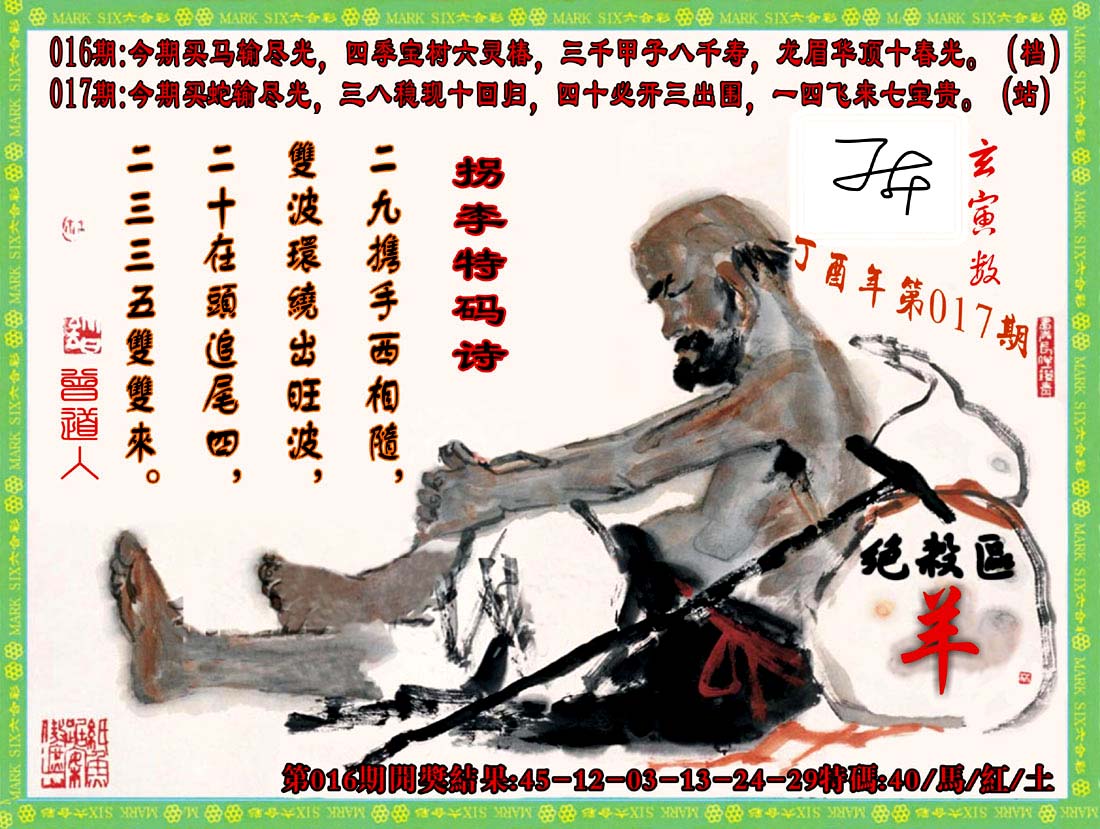 MARK SIX六合彩
016期:今期买马输尽光，四季宝树六灵椿，三千甲子八千寿，龙眉华顶十春光。（档）
017期:今期买蛇输尽光，三八稳现十回归，四十必开三出围，一四飞来七宝贵。（站）
玄寅数
丁酉年第017期
拐李特码诗
二九攜手西相隨，
雙波環繞出旺波，
二十在頭追尾四，
二三三五雙雙來。
曾道人
绝殺區
羊
第016期開獎結果:45-12-03-13-24-29特碼:40/馬/紅/土